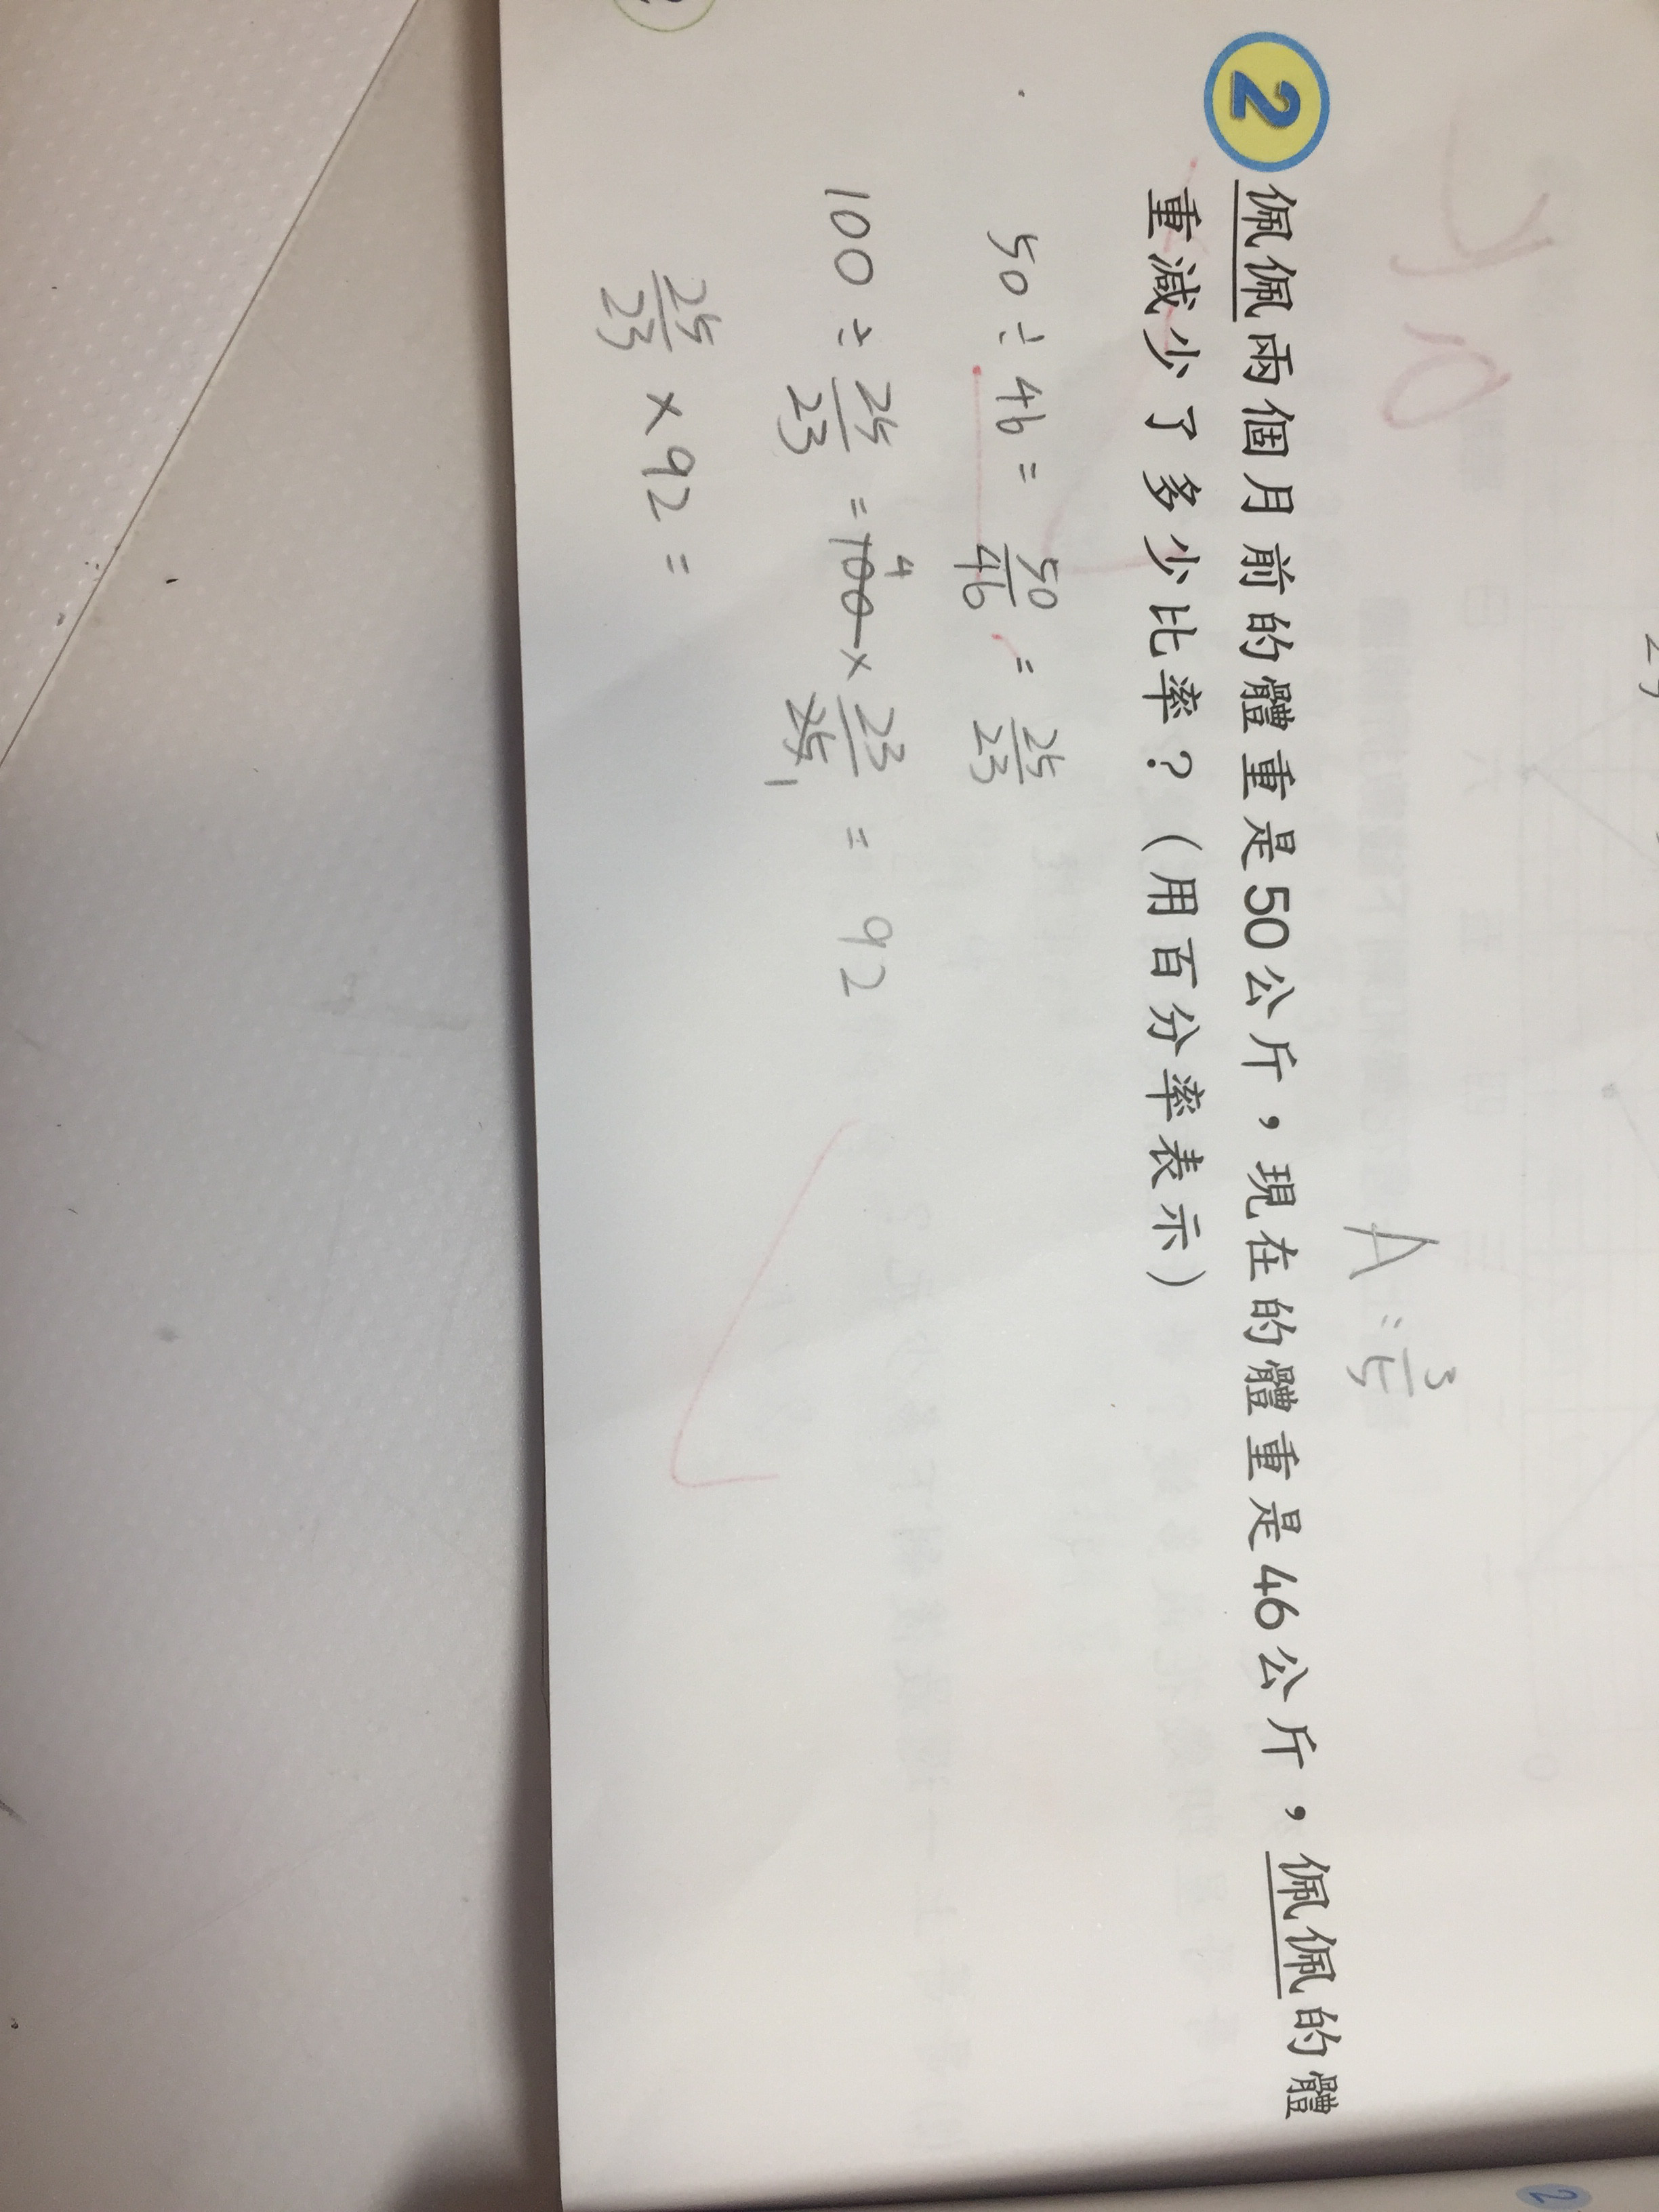 A：3/5
2 佩佩兩個月前的體重是50公斤，現在的體重是46公斤，佩佩的體
重減少了多少比率？（用百分率表示）
50÷46=50/46=25/23
100÷25/23=100 4×23/25 1=92
25/23×92=
2